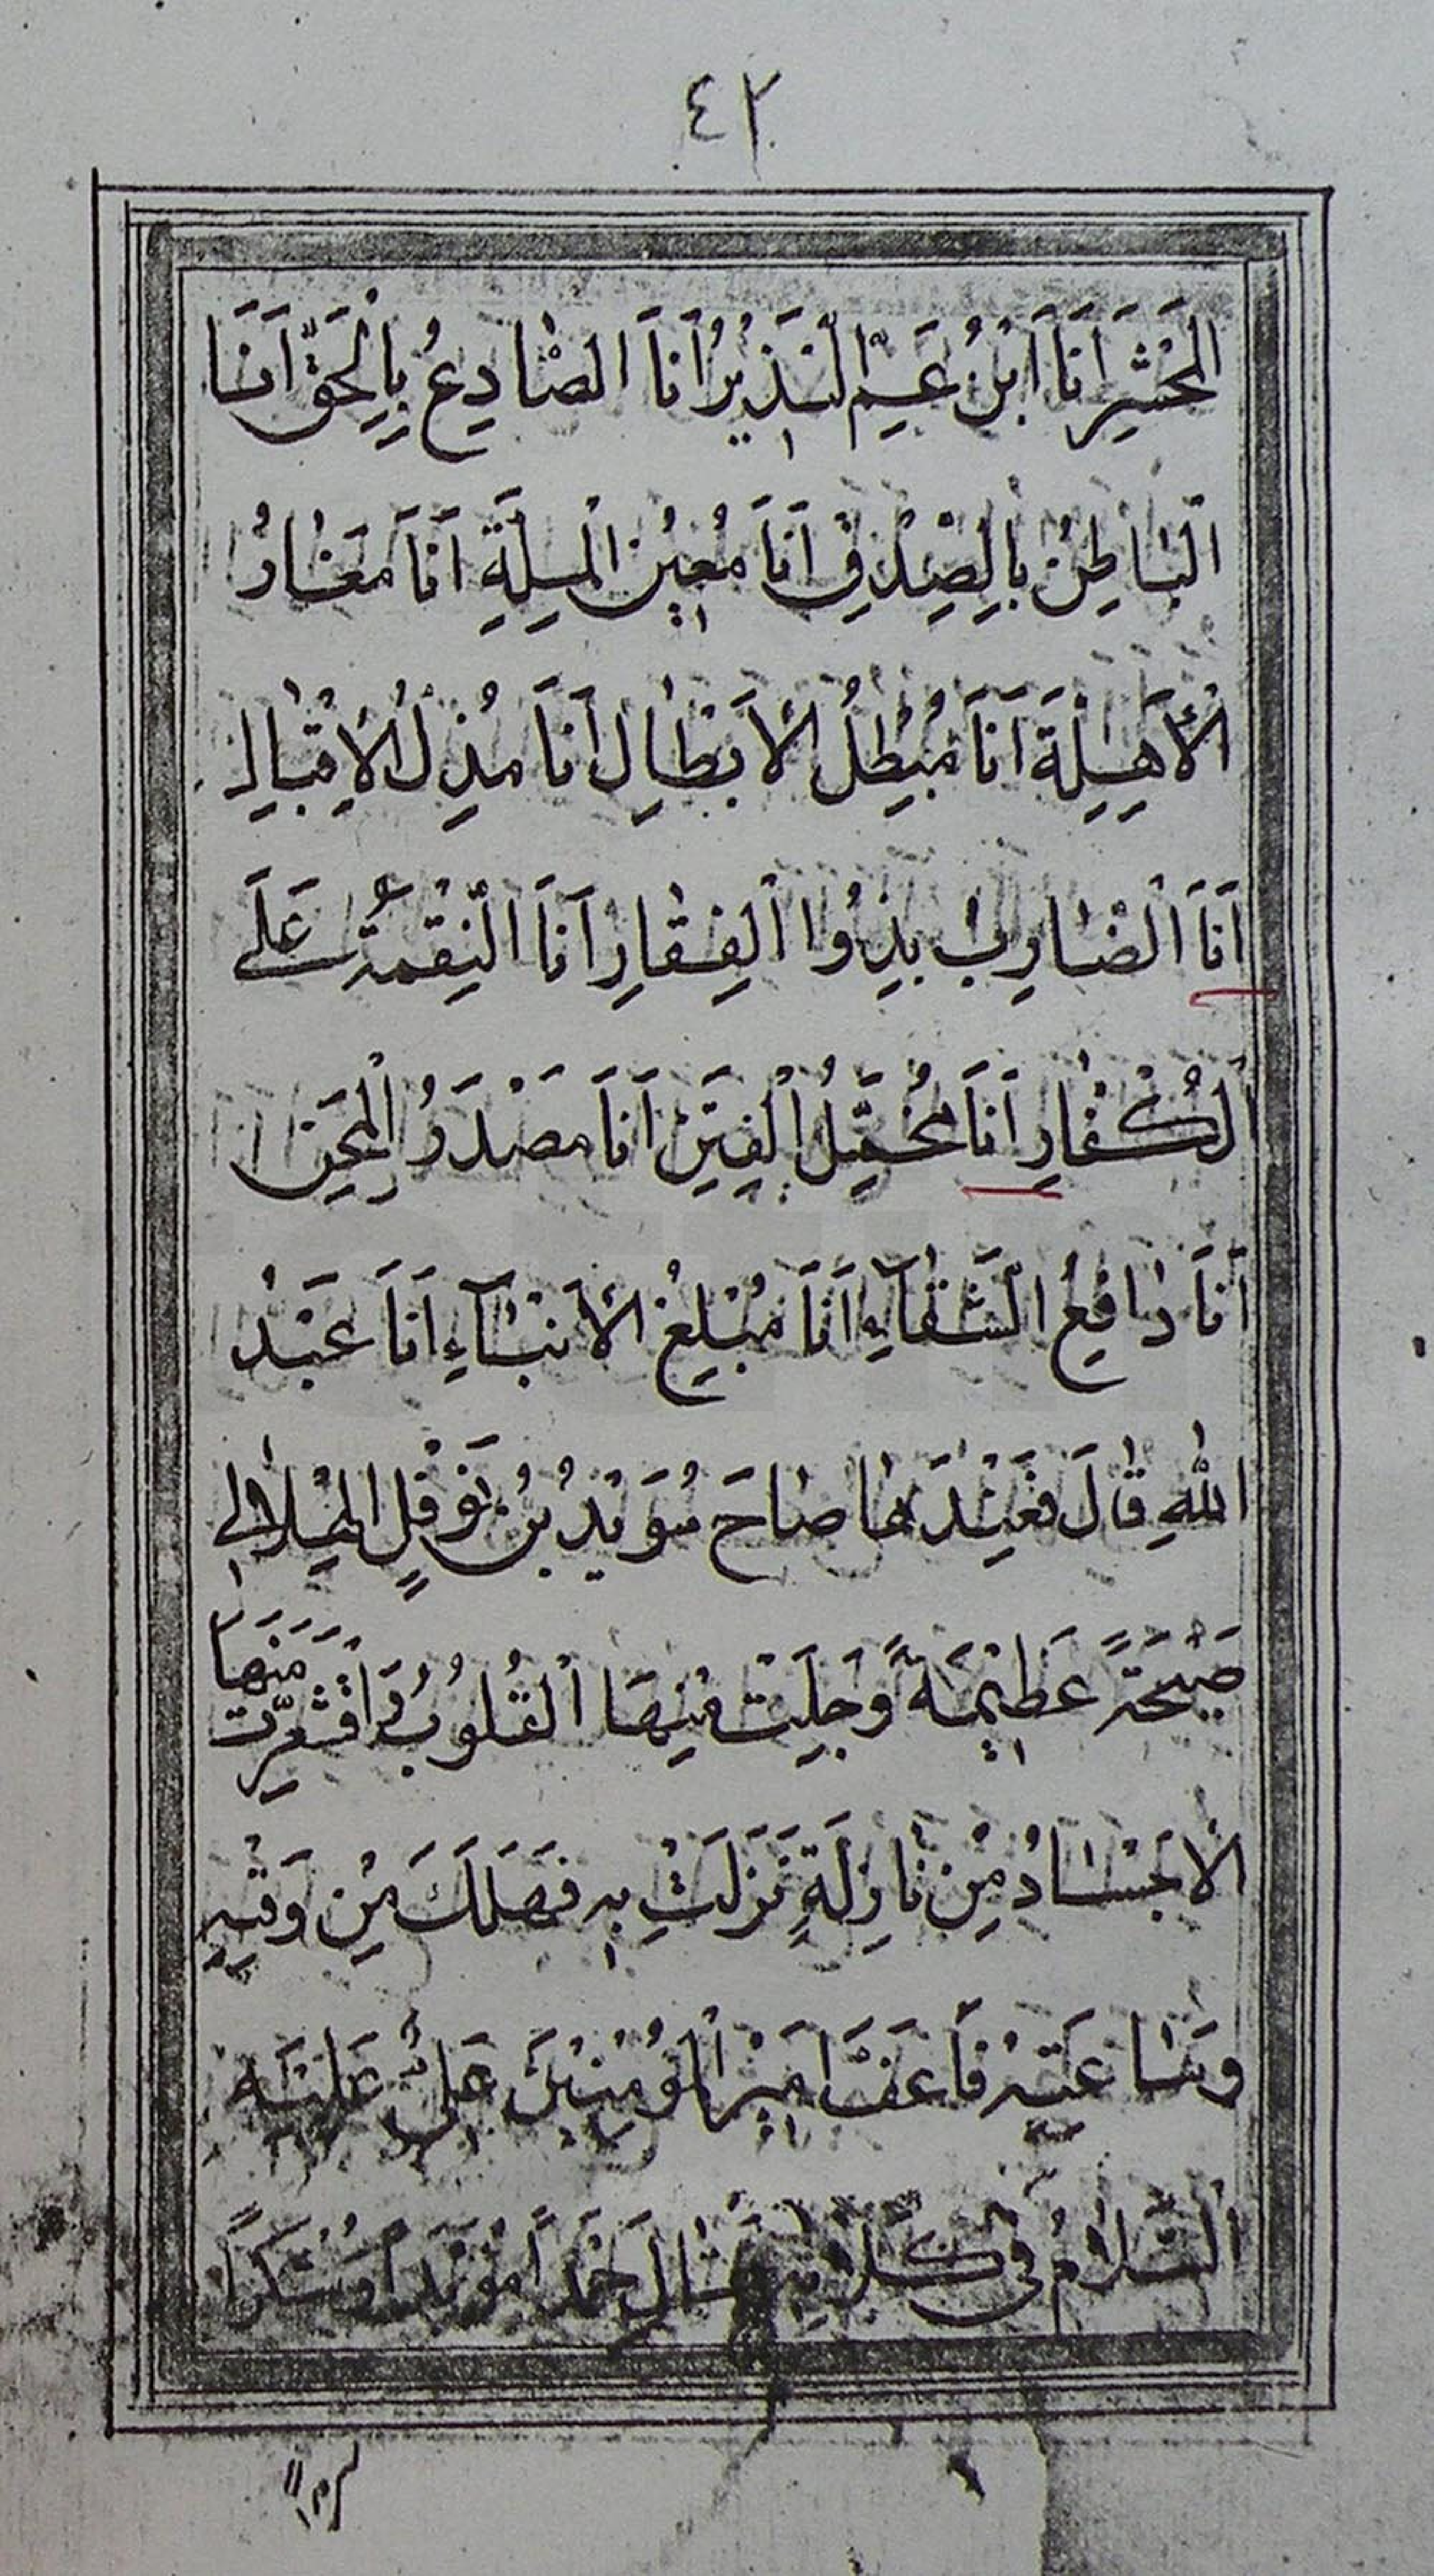 ٤٢
الْمَحْشَرِ اَنَا اَبْنُ عَمِّ النَّذِيرُ اَنَا الصَّادِعُ بِالْحَقِّ اَنَا
الْبَاطِنُ بِالصِّدْقِ اَنَا مُعِينُ الْمِلَّةِ اَنَا مَغَارُ
الْاَهِلَّةَ اَنَا مُبْطِلُ الْاَبْطَالِ اَنَا مُذِلُ الْاِقْبَالِ
اَنَا الضَّارِبُ بِذُوا الْفِقَارِ اَنَا النِّقْمَةُ عَلَى
الْكُفَّارِ اَنَا مُخَيِّلُ الْفِتَنْ اَنَا مَصْدَرُ الْمِحَنْ
اَنَا دَافِعُ الشَّقَآءِ اَنَا مُبْلِغُ الْاَنْبَآءِ اَنَا عَبْدُ
اللهِ قَالَ فَعِنْدَهَا صَاحَ سُوَيْدُ بْنُ نَوْفِلِ الْهِلَالِي
صَيْحَةً عَظِيمَةً وَجِلَتْ مِنْهَا الْقُلُوبُ وَاقْشَعَرَّتْ مِنْهَا
الْاَجْسَادُ مِنْ نَازِلَةٍ نَزَلَتْ بِهِ فَهَلَكَ مِنْ وَقْتِهِ
وَسَاعَتِهِ فَاعَقَبَ اَمِيْرَ الْمُؤْمِنِيْنَ عَلِىُّ عَلَيْهِ
السَّلَامُ فِي كَلَامِهِ قَالَ حَمْداً مُؤَيَّداً وَشُكْراً